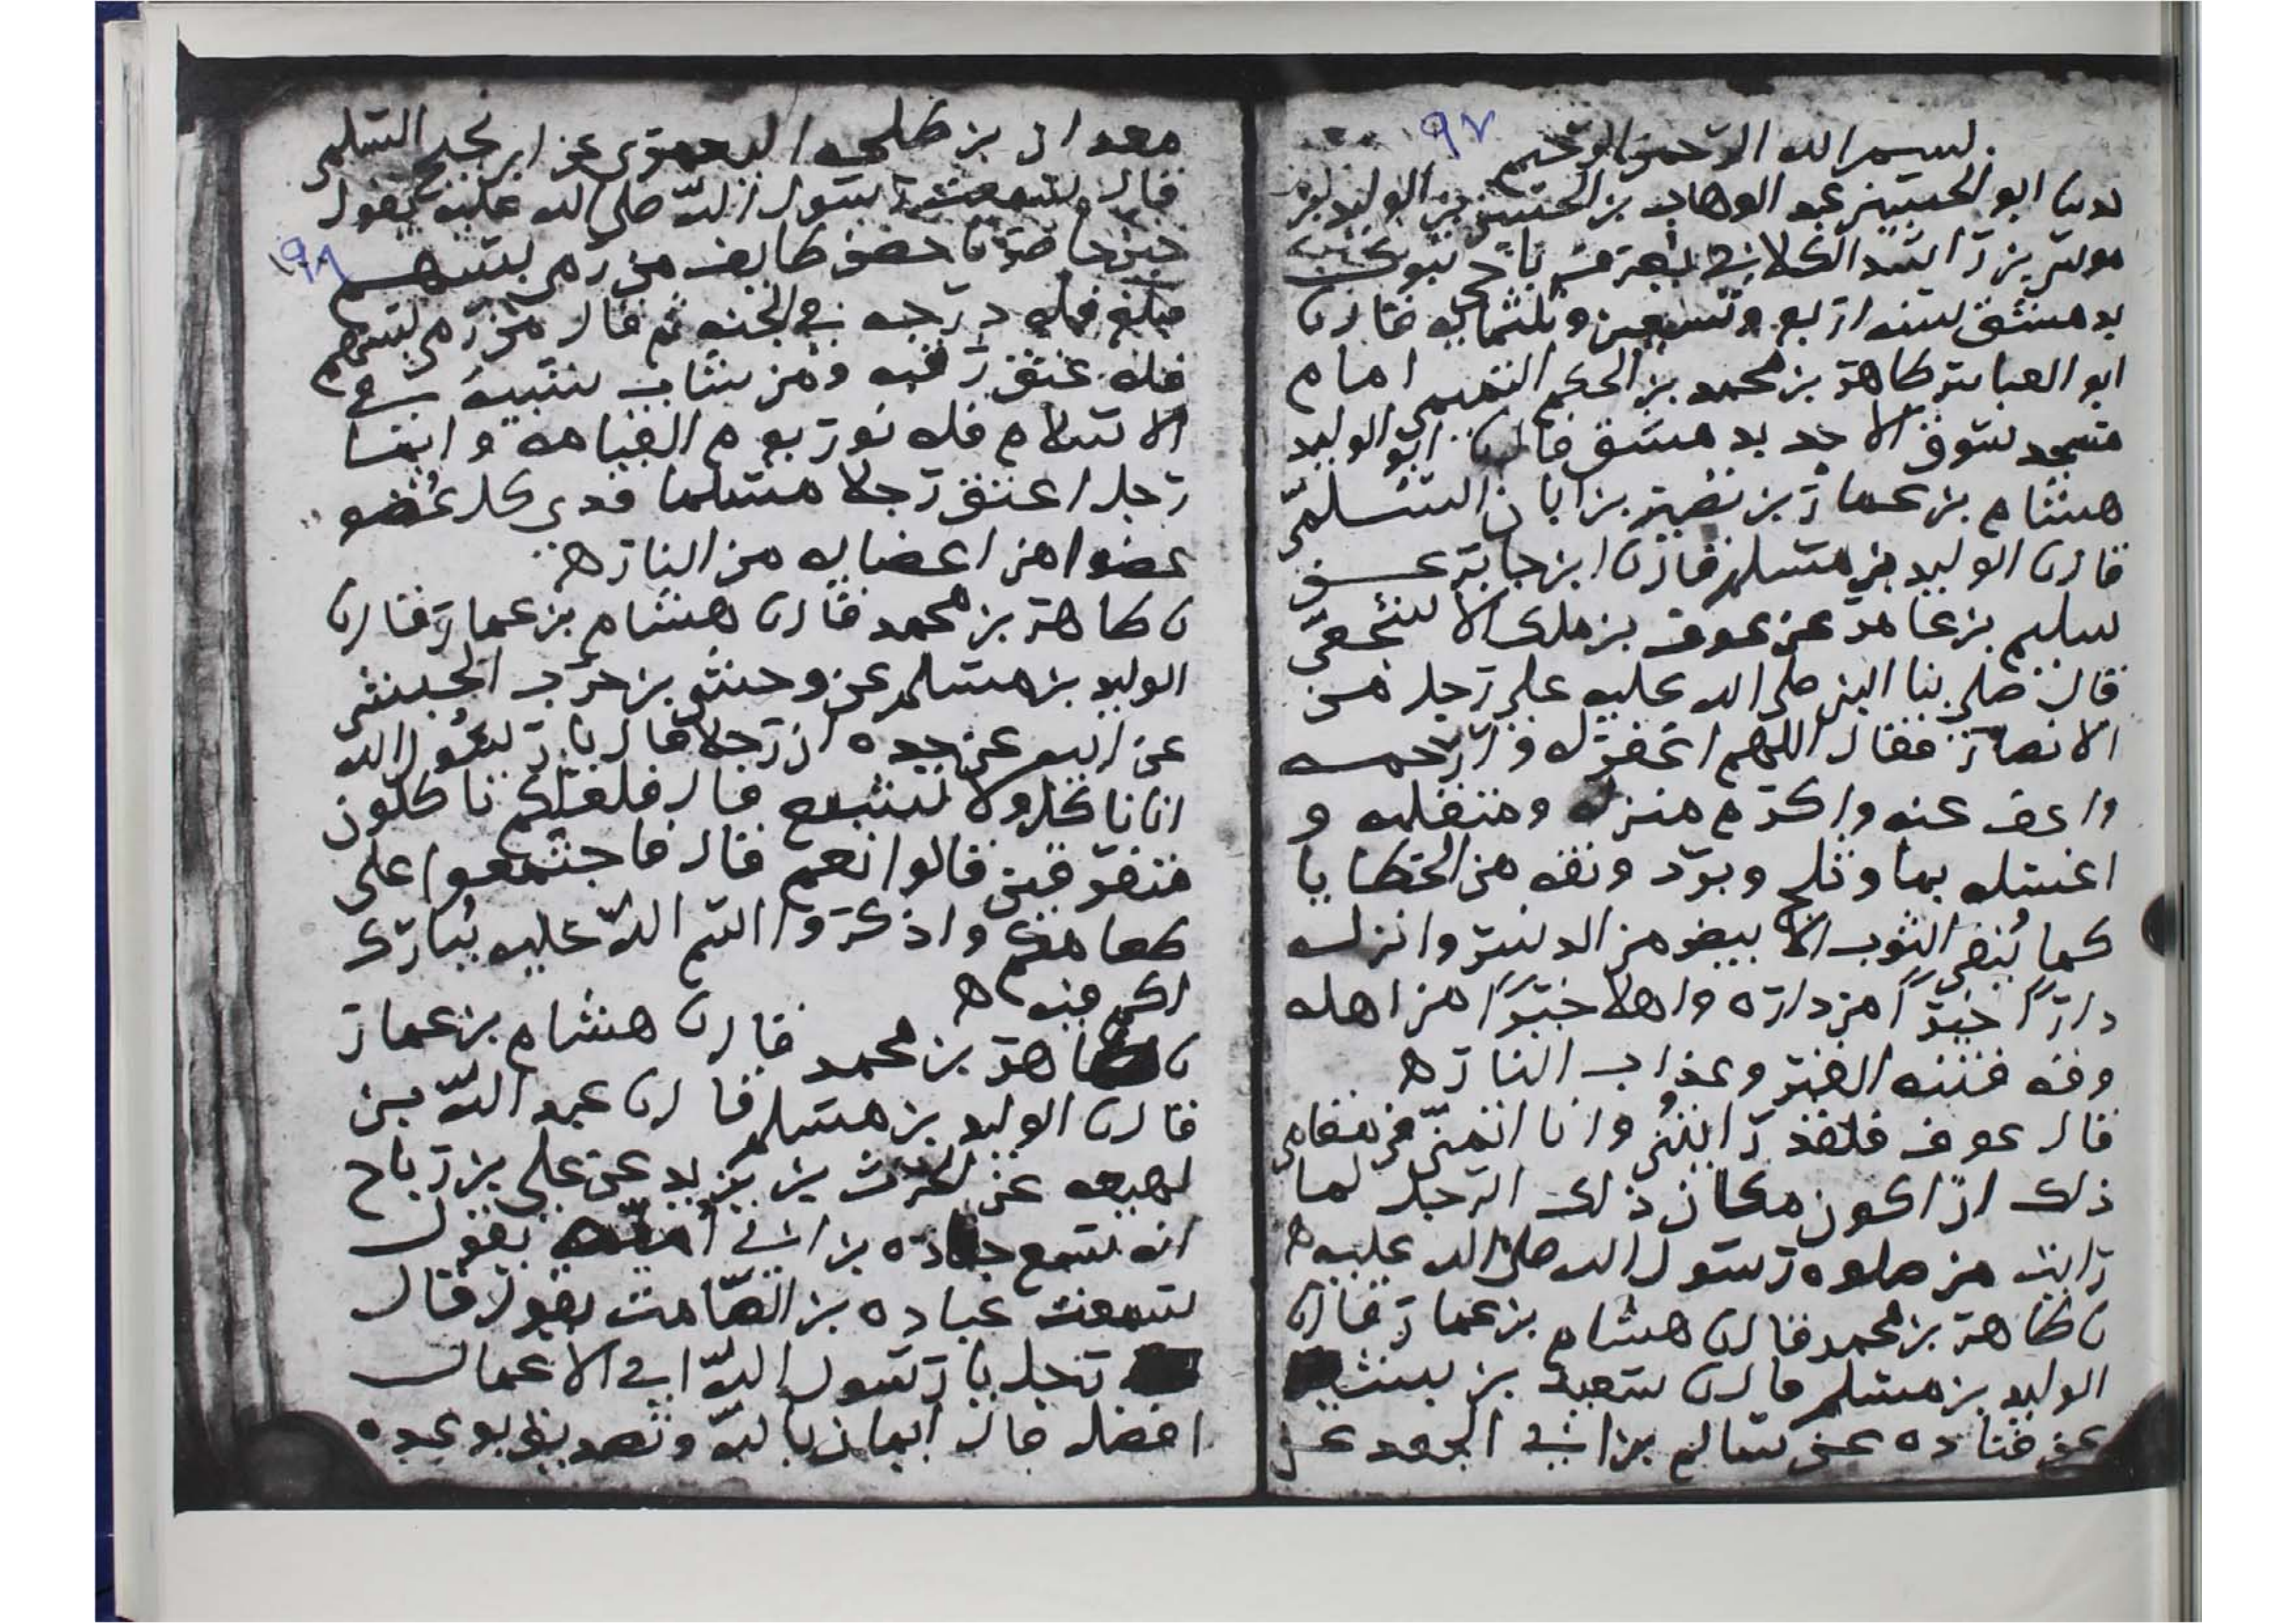 ٩٧
بسم الله الرحمن الرحيم
ابو الحسين عبد الوهاب بن الحسن بن الوليد بن
موسى بن راشد الكلابي
بدمشق سنه اربع وتسعين وثلثمايه قال ن
ابو العباس طاهر بن محمد بن الحكم التميمي امام
مسجد سوق الاحد بدمشق قال ن ابو الوليد
هشام بن عمار بن نصير بن ابان السلمي
قال ن الوليد بن مسلم قال ن ابن جابر عن
سليم بن عامر عن عوف بن ملك الاشجعي
قال صلى بنا النبي صلى الله عليه على رجل من
الانصار فقال اللهم اغفر له وارحمه
واعف عنه واكرم منزله ومنقلبه و
اغسله بما وثلج وبرد ونقه من الخطايا
كما يُنقى الثوب الابيض من الدنس وانزله
داراً خيراً من داره واهلا خيراً من اهله
وقه فتنه القبر وعذاب النار ه
قال عوف فلقد رايتُني وانا اتمنى في مقامي
ذلك ان اكون مكان ذلك الرجل لما
رايت من صلوه رسول الله صلى الله عليه ه
ن طاهر بن محمد قال ن هشام بن عمار قال ن
الوليد بن مسلم قال ن سعيد بن بشير
عن قتاده عن سالم بن ابي الجعد عن
معدان بن طلحه اليعمري عن ابي نجيح السلمي
قال سمعت رسول الله صلى الله عليه يقول
حين حاصرنا حصن طايف من رمى بسهم
٩٨
فبلغ فله درجه في الجنه ثم قال من رمى بسهم
فله عتق رقبه ومن شاب شيبة في
الاسلام فله نور يوم القيامه وايما
رجل اعتق رجلا مسلما فدي كل عُضو
عضوا من اعضايه من النار ه
ن طاهر بن محمد قال ن هشام بن عمار قال ن
الوليد بن مسلم عن وحشي بن حرب الحبشي
عن ابيه عن جده ان رجلا قال يا رسُول الله
انا ناكل ولا نشبع قال فلعلكم تاكلون
متفرقين قالوا نعم قال فاجتمعوا على
طعامكم واذكروا اسم الله عليه يُبارك
لكم فيه ه
ن طاهر بن محمد قال ن هشام بن عمار
قال ن الوليد بن مسلم قال ن عبد الله بن
لهيعه عن الحرث بن يزيد عن علي بن رباح
انه سمع جناده بن ابي اميه يقول
سمعت عباده بن الصامت يقول قال
رجل يا رسول الله اي الاعمال
افضل قال ايمان بالله وتصديق بوعده